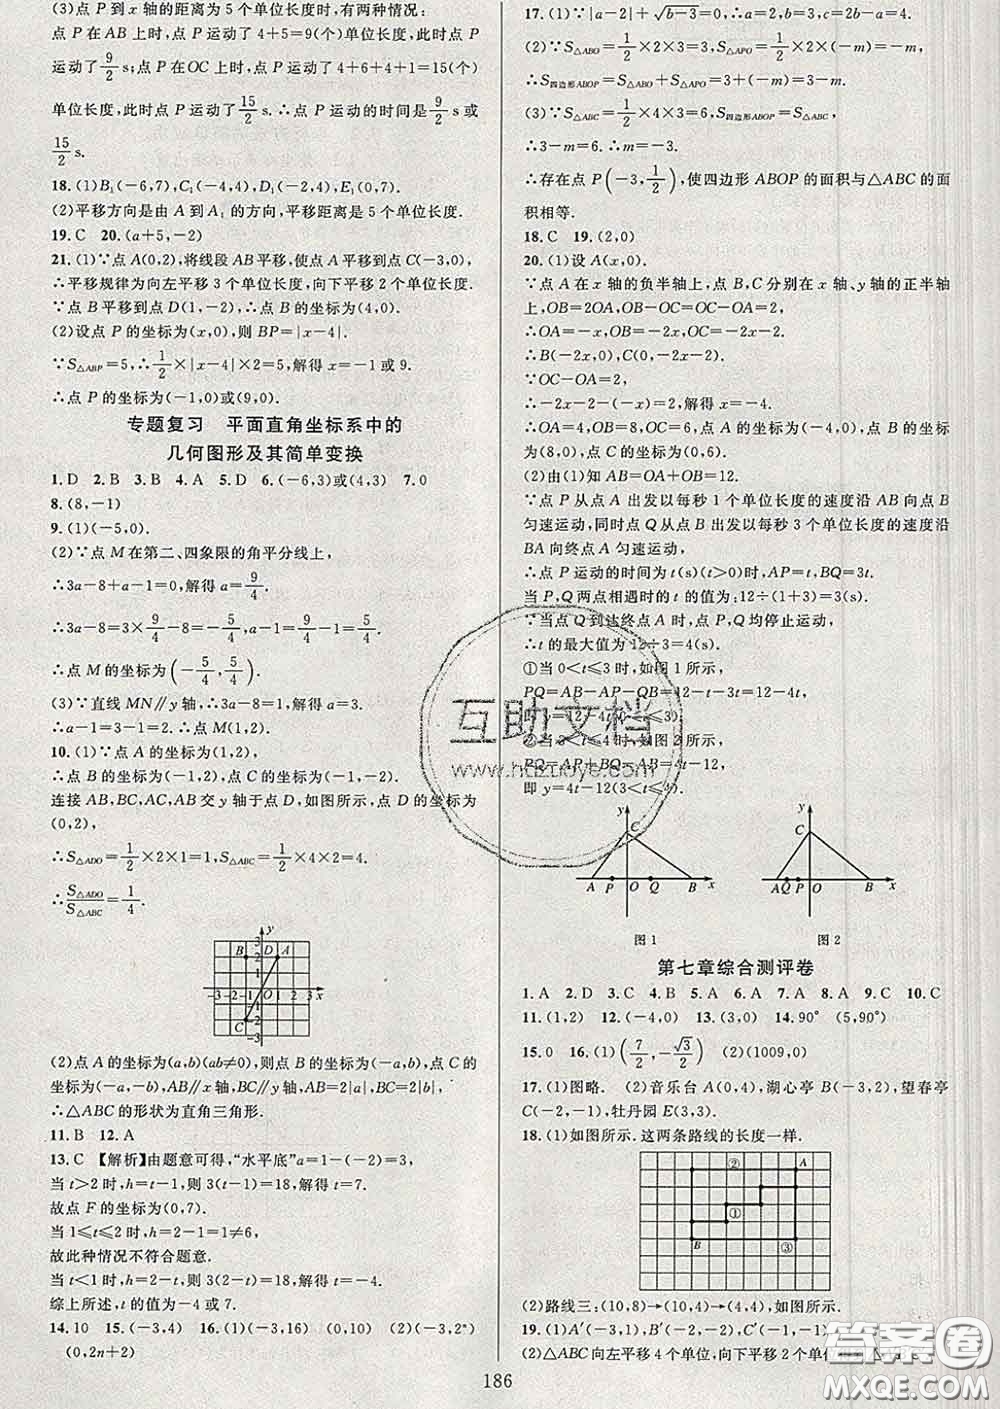 (3)点 P 到 x 轴的距离为 5 个单位长度时,有两种情况:
点 P 在 AB 上时,点 P 运动了 4+5=9(个)单位长度,此时点 P
运动了 9/2 s;点 P 在 OC 上时,点 P 运动了 4+6+4+1=15(个)
单位长度,此时点 P 运动了 15/2 s.∴点 P 运动的时间是 9/2 s 或
15/2 s.
18.(1)B₁(-6,7),C₁(-4,4),D₁(-2,4),E₁(0,7).
(2)平移方向是由 A 到 A₁ 的方向,平移距离是 5 个单位长度.
19.C 20.(a+5,-2)
21.(1)∵点 A(0,2),将线段 AB 平移,使点 A 平移到点 C(-3,0),
∴平移规律为向左平移 3 个单位长度,向下平移 2 个单位长度.
∵点 B 平移到点 D(1,-2),∴点 B(4,0).
(2)设点 P 的坐标为(x,0),则 BP=|x-4|.
∵S△ABP=5,∴1/2×|x-4|×2=5,解得 x=-1或9.
∴点 P 的坐标为(-1,0)或(9,0).
专题复习 平面直角坐标系中的
几何图形及其简单变换
1.D 2.B 3.B 4.A 5.D 6.(-6,3)或(4,3) 7.0
8.(8,-1)
9.(1)(-5,0).
(2)∵点 M 在第二、四象限的角平分线上,
∴3a-8+a-1=0,解得 a=9/4.
∴3a-8=3×9/4-8=-5/4,a-1=9/4-1=5/4.
∴点 M 的坐标为(-5/4,5/4).
(3)∵直线 MN∥y 轴,∴3a-8=1.∴a=3.
∴a-1=3-1=2.∴点 M(1,2).
10.(1)∵点 A 的坐标为(1,2),
∴点 B 的坐标为(-1,2),点 C 的坐标为(-1,-2).
连接 AB,BC,AC,AB 交 y 轴于点 D,如图所示,点 D 的坐标为
(0,2),
∴S△ADO=1/2×2×1=1,S△ABC=1/2×4×2=4.
∴S△ADO/S△ABC=1/4.
y
3
B 2 D A
1
-3 -2 -1 O 1 2 3 x
-1
C -2
-3
(2)点 A 的坐标为(a,b)(ab≠0),则点 B 的坐标为(-a,b),点 C 的
坐标为(-a,-b),AB∥x 轴,BC∥y 轴,AB=2|a|,BC=2|b|,
∴△ABC 的形状为直角三角形.
11.B 12.A
13.C 【解析】由题意可得,“水平底”a=1-(-2)=3,
当 t>2 时,h=t-1,则 3(t-1)=18,解得 t=7.
故点 F 的坐标为(0,7).
当 1≤t≤2 时,h=2-1=1≠6,
故此种情况不符合题意.
当 t<1 时,h=2-t,则 3(2-t)=18,解得 t=-4.
综上所述,t 的值为-4 或 7.
14.10 15.(-3,4) 16.(1)(-3,16) (0,10) (2)(-3,2ⁿ)
(0,2n+2)
17.(1)∵|a-2|+√(b-3)=0,∴a=2,b=3,c=2b-a=4.
(2)∵S△ABO=1/2×2×3=3,S△APO=1/2×2×(-m)=-m,
∴S四边形ABOP=S△ABO+S△APO=3+(-m)=3-m.
(3)∵S△ABC=1/2×4×3=6,S四边形ABOP=S△ABC,
∴3-m=6.∴m=-3.
∴存在点 P(-3,1/2),使四边形 ABOP 的面积与△ABC 的面
积相等.
18.C 19.(2,0)
20.(1)设 A(x,0).
∵点 A 在 x 轴的负半轴上,点 B,C 分别在 x 轴、y 轴的正半轴
上,OB=2OA,OB-OC=OC-OA=2,
∴OA=-x,OB=-2x,OC=-2x-2.
∴B(-2x,0),C(0,-2x-2).
∵OC-OA=2,
∴-2x-2-(-x)=2,解得 x=-4.
∴OA=4,OB=8,OC=6.
∴点 A 的坐标为(-4,0),点 C 的坐标为(0,6).
(2)由(1)知 AB=OA+OB=12.
∵点 P 从点 A 出发以每秒 1 个单位长度的速度沿 AB 向点 B
匀速运动,同时点 Q 从点 B 出发以每秒 3 个单位长度的速度沿
BA 向终点 A 匀速运动,
∴点 P 运动的时间为 t(s)(t>0)时,AP=t,BQ=3t.
当 P,Q 两点相遇时的 t 的值为:12÷(1+3)=3(s).
∵当点 Q 到达终点 A 时,点 P,Q 均停止运动,
∴t 的最大值为 12÷3=4(s).
①当 0<t≤3 时,如图 1 所示,
PQ=AB-AP-BQ=12-t-3t=12-4t,
即 y=12-4t(0<t≤3).
②当 3<t≤4 时,如图 2 所示,
PQ=AP+BQ-AB=t+3t-12=4t-12,
即 y=4t-12(3<t≤4).
y C A P O Q B x
图 1
y C A Q P O B x
图 2
第七章综合测评卷
1.A 2.D 3.C 4.B 5.C 6.A 7.A 8.A 9.C 10.C
11.(1,2) 12.(-4,0) 13.(3,0) 14.90° (5,90°)
15.0 16.(1)(7/2,-√3/2) (2)(1009,0)
17.(1)图略. (2)音乐台 A(0,4),湖心亭 B(-3,2),望春亭
C(-2,-1),牡丹园 E(3,3).
18.(1)如图所示.这两条路线的长度一样.
② A
①
B ③
(2)路线三:(10,8)→(10,4)→(4,4),如图所示.
19.(1)A′(-3,1),B′(-2,-2),C′(-1,-1).
(2)△ABC 向左平移 4 个单位,向下平移 2 个单位
186
互助文档
www.hdzuoye.com
答案圈
MXQE.COM